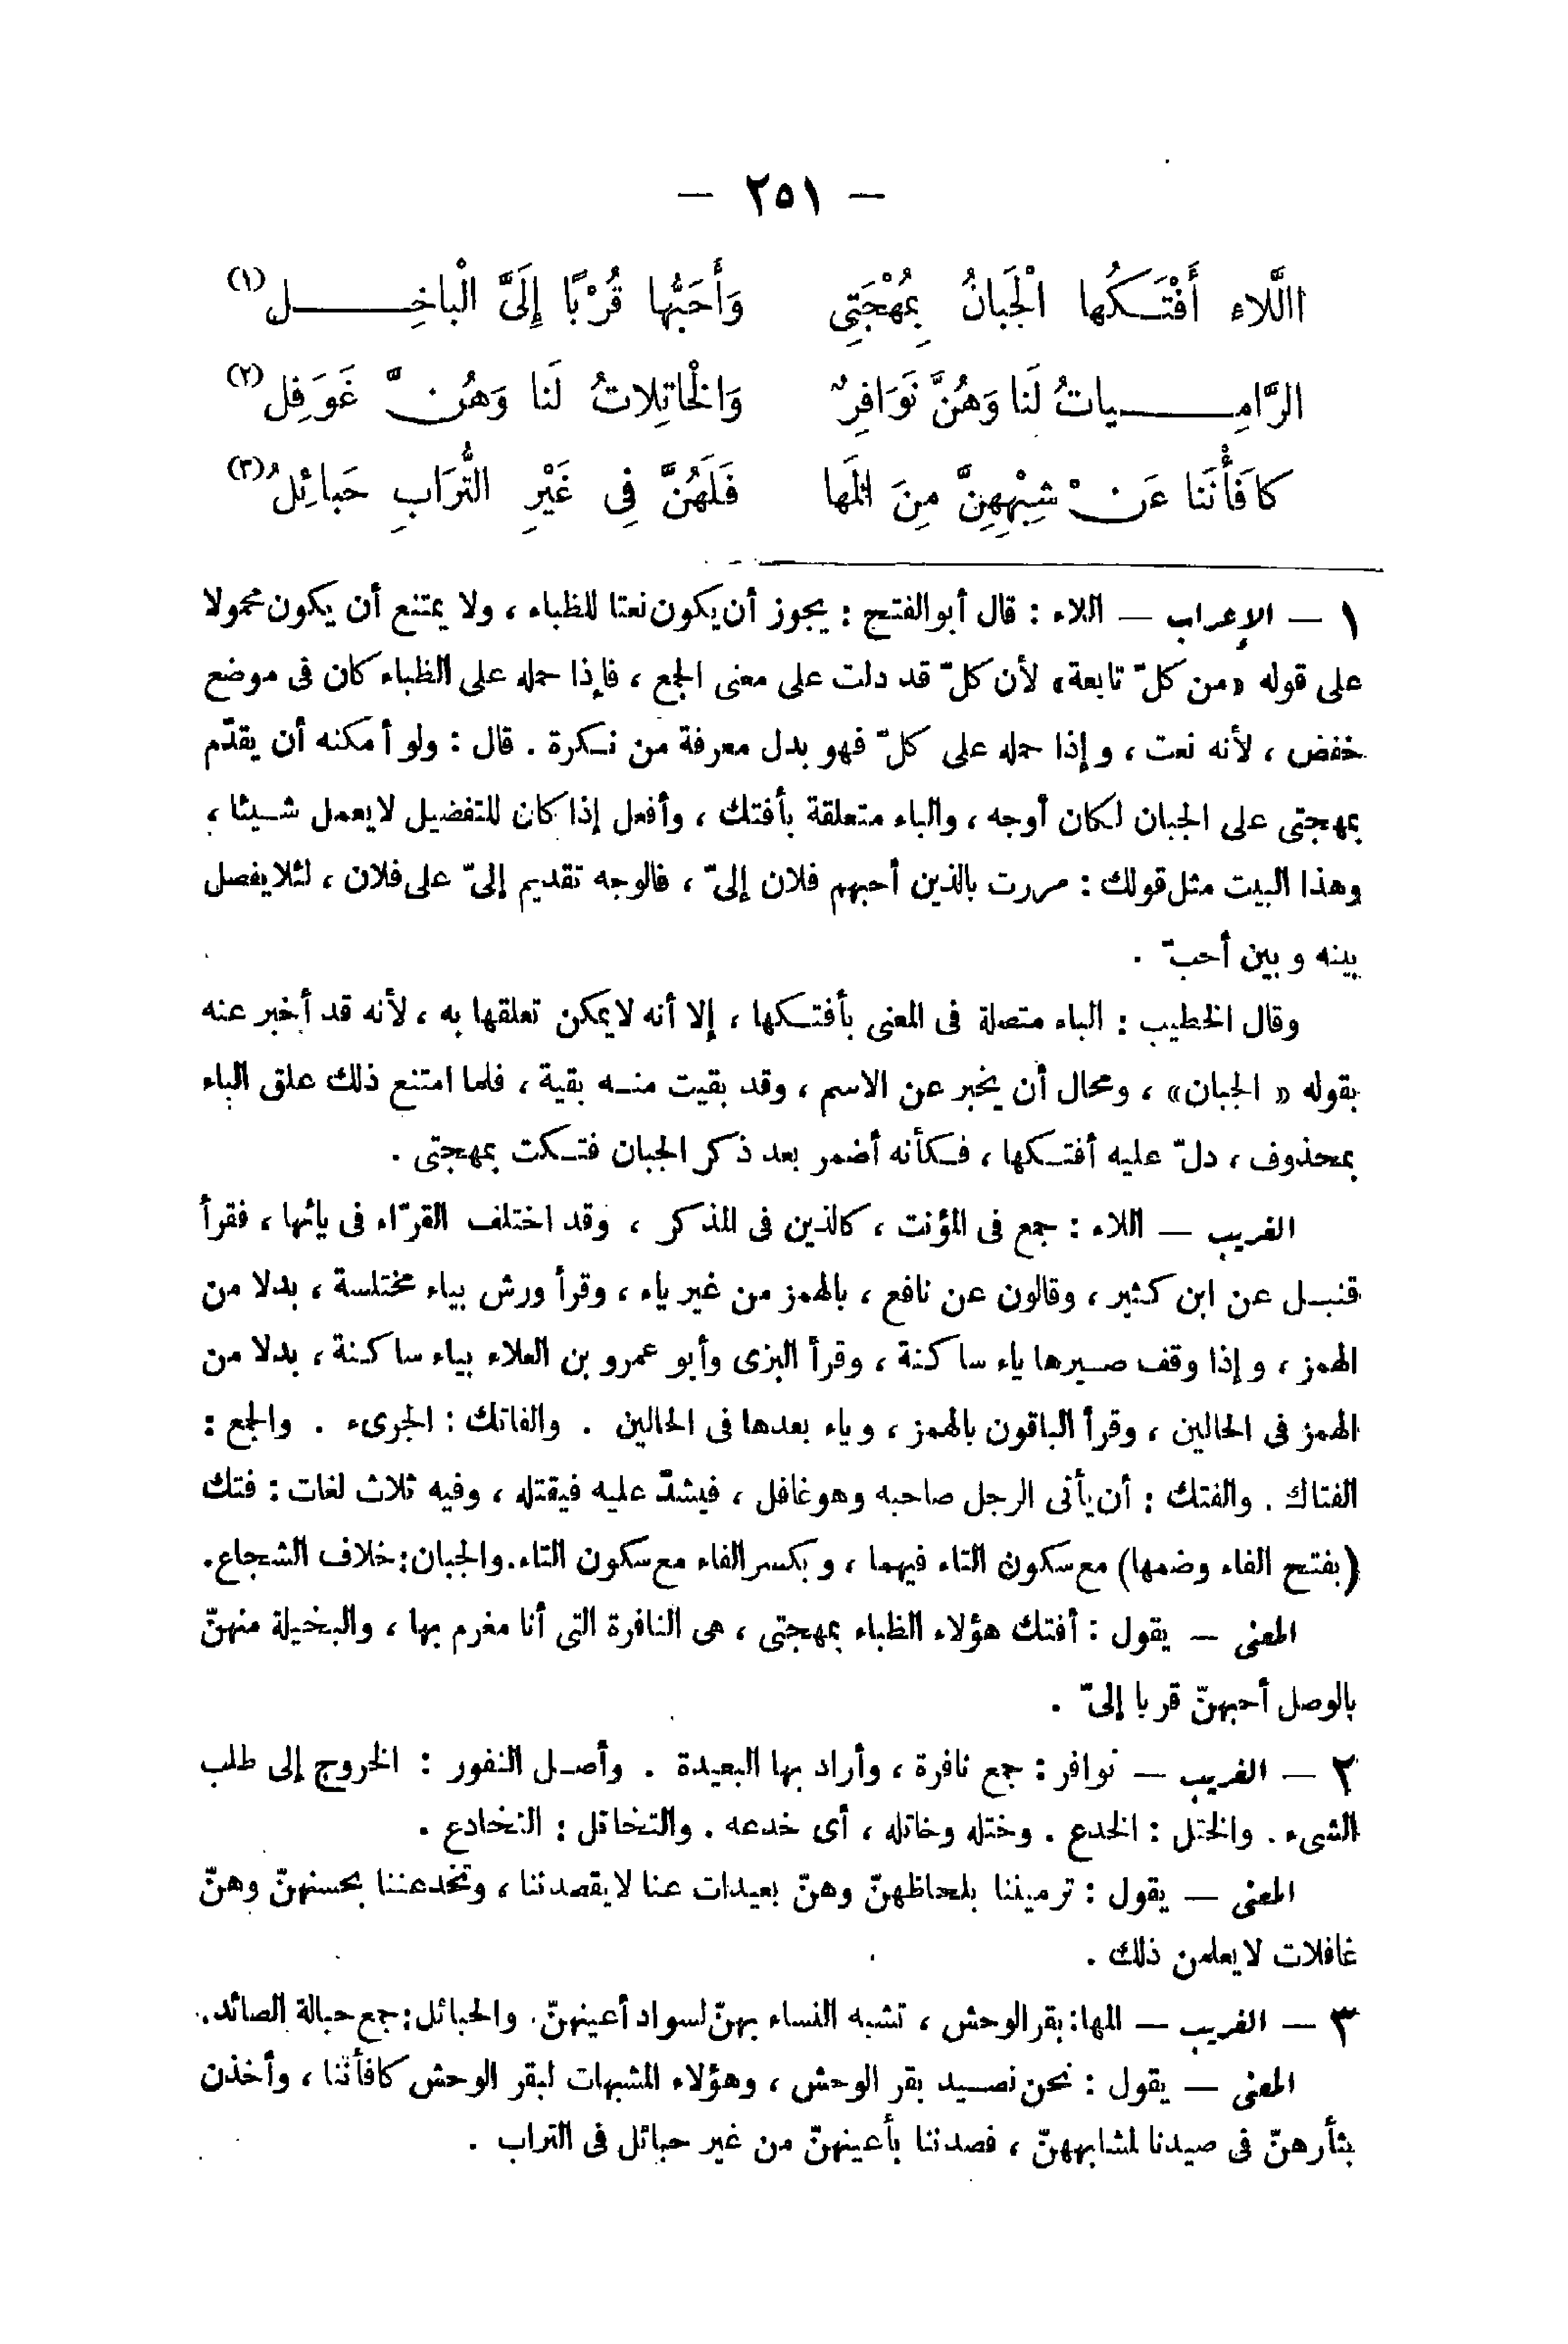 — ٢٥١ —
اللَّاءِ أَفْتَكُها الْجَبانُ بِمُهْجَتِى وَأَحَبُّها قُرْبًا إِلَىَّ الْباخِل(١)
الرَّامِياتُ لَنا وَهُنَّ نَوَافِرٌ وَالْخاتِلاتُ لَنا وَهُنَّ غَوَفِل(٢)
كافَأْنَنا عَنْ شِبْهِهِنَّ مِنَ المَها فَلَهُنَّ فِى غَيْرِ التُّرَابِ حَبائِلُ(٣)
١ — الإعراب — اللاء : قال أبو الفتح : يجوز أن يكون نعتا للظباء ، ولا يمتنع أن يكون محمولا
على قوله «من كلّ تابعة» لأن كلّ قد دلت على معنى الجمع ، فإذا حمله على الظباء كان فى موضع
خفض ، لأنه نعت ، وإذا حمله على كلّ فهو بدل معرفة من نكرة . قال : ولو أمكنه أن يقدّم
بمهجتى على الجبان لكان أوجه ، والباء متعلقة بأفتك ، وأفعل إذا كان للتفضيل لا يعمل شيئا ،
وهذا البيت مثل قولك : مررت بالذين أحبهم فلان إلىّ ، فالوجه تقديم إلىّ على فلان ، لئلا يفصل
بينه وبين أحبّ .
وقال الخطيب : الباء متصلة فى المعنى بأفتكها ، إلا أنه لا يمكن تعلقها به ، لأنه قد أخبر عنه
بقوله « الجبان» ، ومحال أن يخبر عن الاسم ، وقد بقيت منه بقية ، فلما امتنع ذلك علق الباء
بمحذوف ، دلّ عليه أفتكها ، فكأنه أضمر بعد ذكر الجبان فتكت بمهجتى .
الغريب — اللاء : جمع فى المؤنت ، كالذين فى المذكر ، وقد اختلف القرّاء فى يائها ، فقرأ
قنبل عن ابن كثير ، وقالون عن نافع ، بالهمز من غير ياء ، وقرأ ورش بياء مختلسة ، بدلا من
الهمز ، وإذا وقف صيرها ياء ساكنة ، وقرأ البزى وأبو عمرو بن العلاء بياء ساكنة ، بدلا من
الهمز فى الحالين ، وقرأ الباقون بالهمز ، وياء بعدها فى الحالين . والفاتك : الجرىء . والجمع :
الفتاك . والفتك : أن يأتى الرجل صاحبه وهو غافل ، فيشدّ عليه فيقتله ، وفيه ثلاث لغات : فتك
(بفتح الفاء وضمها) مع سكون التاء فيهما ، وبكسر الفاء مع سكون التاء. والجبان: خلاف الشجاع.
المعنى — يقول : أفتك هؤلاء الظباء بمهجتى ، هى النافرة التى أنا مغرم بها ، والبخيلة منهنّ
بالوصل أحبهنّ قربا إلىّ .
٢ — الغريب — نوافر : جمع نافرة ، وأراد بها البعيدة . وأصل النفور : الخروج إلى طلب
الشىء . والختل : الخدع . وختله وخاتله ، أى خدعه . والتخاتل : التخادع .
المعنى — يقول : ترميننا بلحاظهنّ وهنّ بعيدات عنا لا يقصدننا ، وتخدعننا بحسنهنّ وهنّ
غافلات لا يعلمن ذلك .
٣ — الغريب — المها: بقر الوحش ، تشبه النساء بهنّ لسواد أعينهنّ. والحبائل: جمع حبالة الصائد.
المعنى — يقول : نحن نصيد بقر الوحش ، وهؤلاء المشبهات لبقر الوحش كافأننا ، وأخذن
بثأرهنّ فى صيدنا لمشابههنّ ، فصدننا بأعينهنّ من غير حبائل فى التراب .